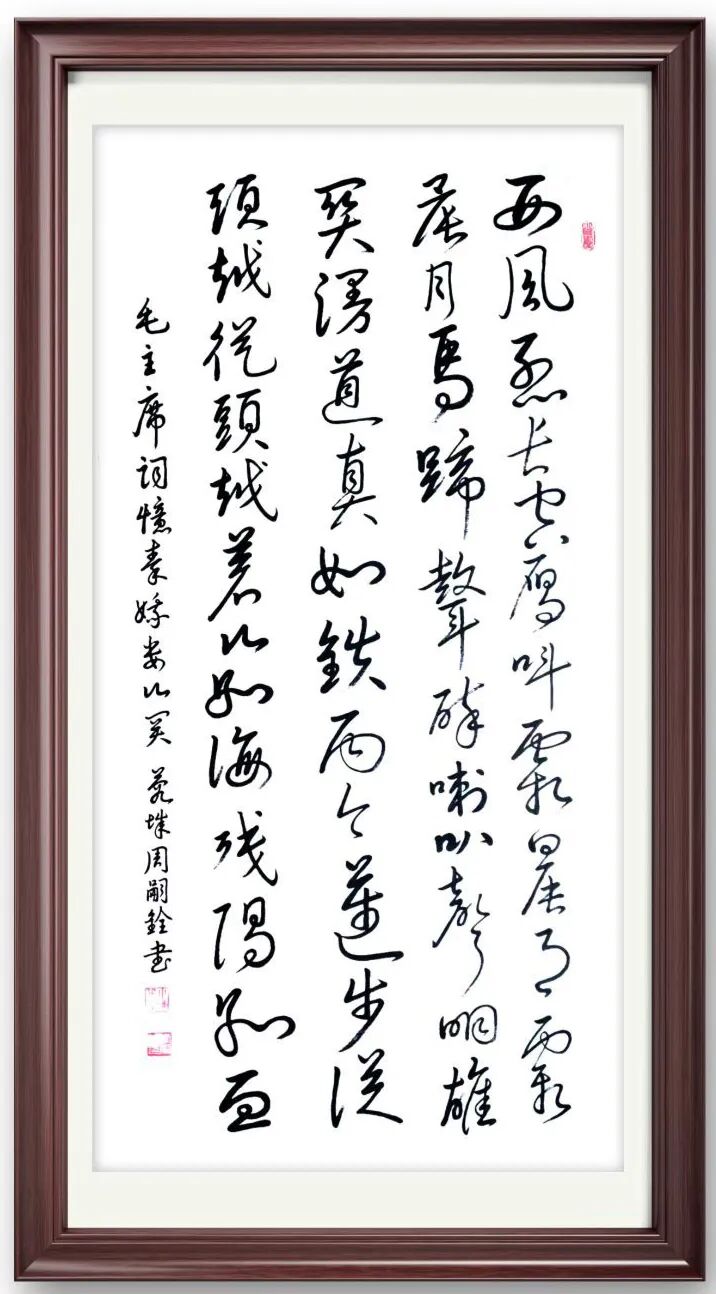 西風烈长空雁叫霜晨月霜
晨月馬蹄聲碎喇叭聲咽雄
関漫道真如鐵而今邁步從
頭越從頭越蒼山如海残陽如血
毛主席詞憶秦娥婁山関 城周嗣銓書